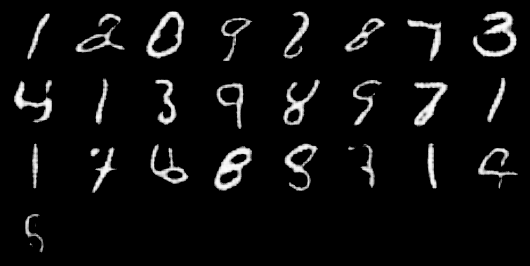 1 2 0 9 2 8 7 3
4 1 3 9 8 9 7 1
1 7 6 8 8 7 1 4
5